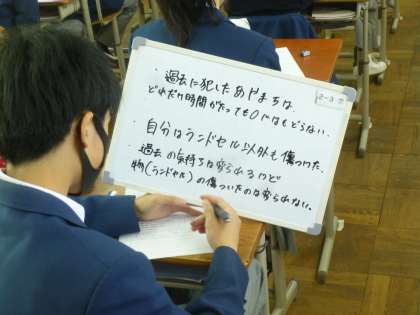 ・過去に犯したあやまちは、
どれだけ時間がたっても0にはもどらない。
・自分はランドセル以外も傷つけた。
過去の気持ちは変えられるけど
物(ランドセル)の傷ついたのは変えられない。